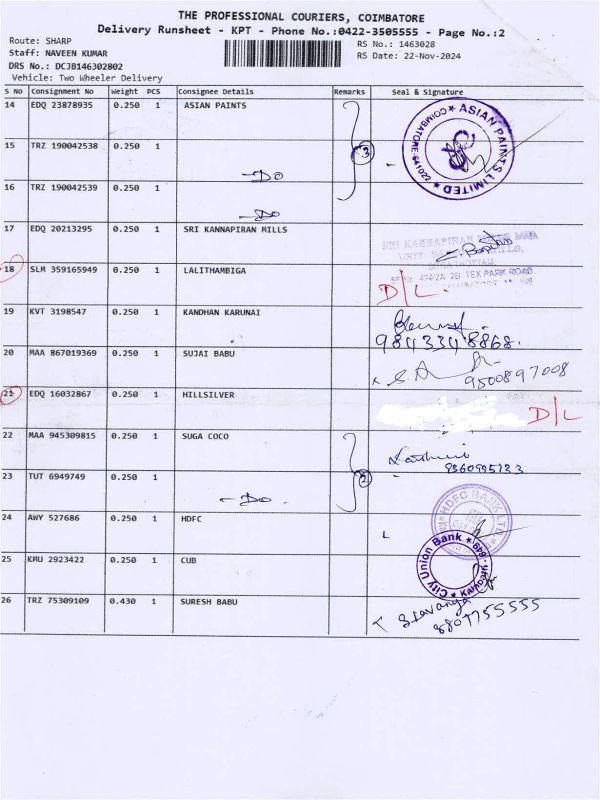 THE PROFESSIONAL COURIERS, COIMBATORE
Delivery Runsheet - KPT - Phone No.:0422-3505555 - Page No.:2
Route: SHARP
RS No.: 1463028
Staff: NAVEEN KUMAR
RS Date: 22-Nov-2024
DRS No.: DCJB146302802
Vehicle: Two Wheeler Delivery
S No Consignment No Weight PCS Consignee Details Remarks Seal & Signature
14 EDQ 23878935 0.250 1 ASIAN PAINTS
ASIAN PAINTS LIMITED
COIMBATORE-641022
15 TRZ 190042538 0.250 1
3
-Do
16 TRZ 190042539 0.250 1
-Do
17 EDQ 20213295 0.250 1 SRI KANNAPIRAN MILLS
SRI KANNAPIRAN
2B TEX PARK ROAD
18 SLM 359165949 0.250 1 LALITHAMBIGA
D/L.
19 KVT 3198547 0.250 1 KANDHAN KARUNAI
9843348868.
20 MAA 867019369 0.250 1 SUJAI BABU
9500897008
21 EDQ 16032867 0.250 1 HILLSILVER
D/L
22 MAA 945309815 0.250 1 SUGA COCO
23 TUT 6949749 0.250 1
2
-Do.
24 AWY 527686 0.250 1 HDFC
HDFC BANK LTD
25 KMU 2923422 0.250 1 CUB
City Union Bank
26 TRZ 75309109 0.430 1 SURESH BABU
Sravanya
8807755555